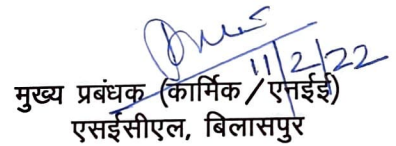 11/2/22
मुख्य प्रबंधक (कार्मिक/एनईई)
एसईसीएल, बिलासपुर